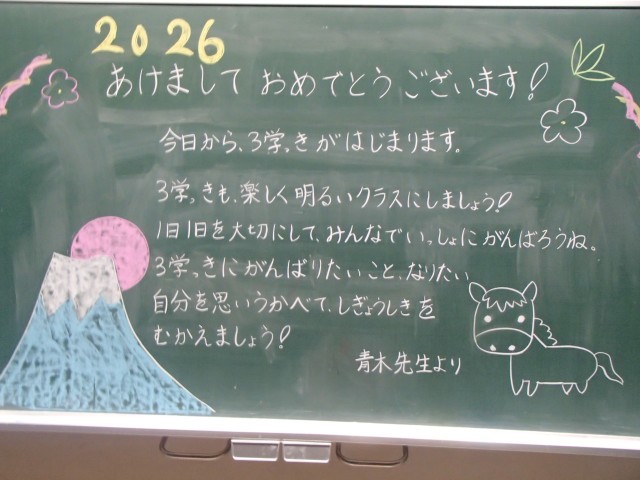 2026
あけまして おめでとうございます!
今日から、3学きがはじまります。
3学っきも、楽しく明るいクラスにしましょう!
1日1日を大切にして、みんなでいっしょにがんばろうね。
3学っきにがんばりたいこと、なりたい
自分を思いうかべて、しぎょうしきを
むかえましょう!
青木先生より